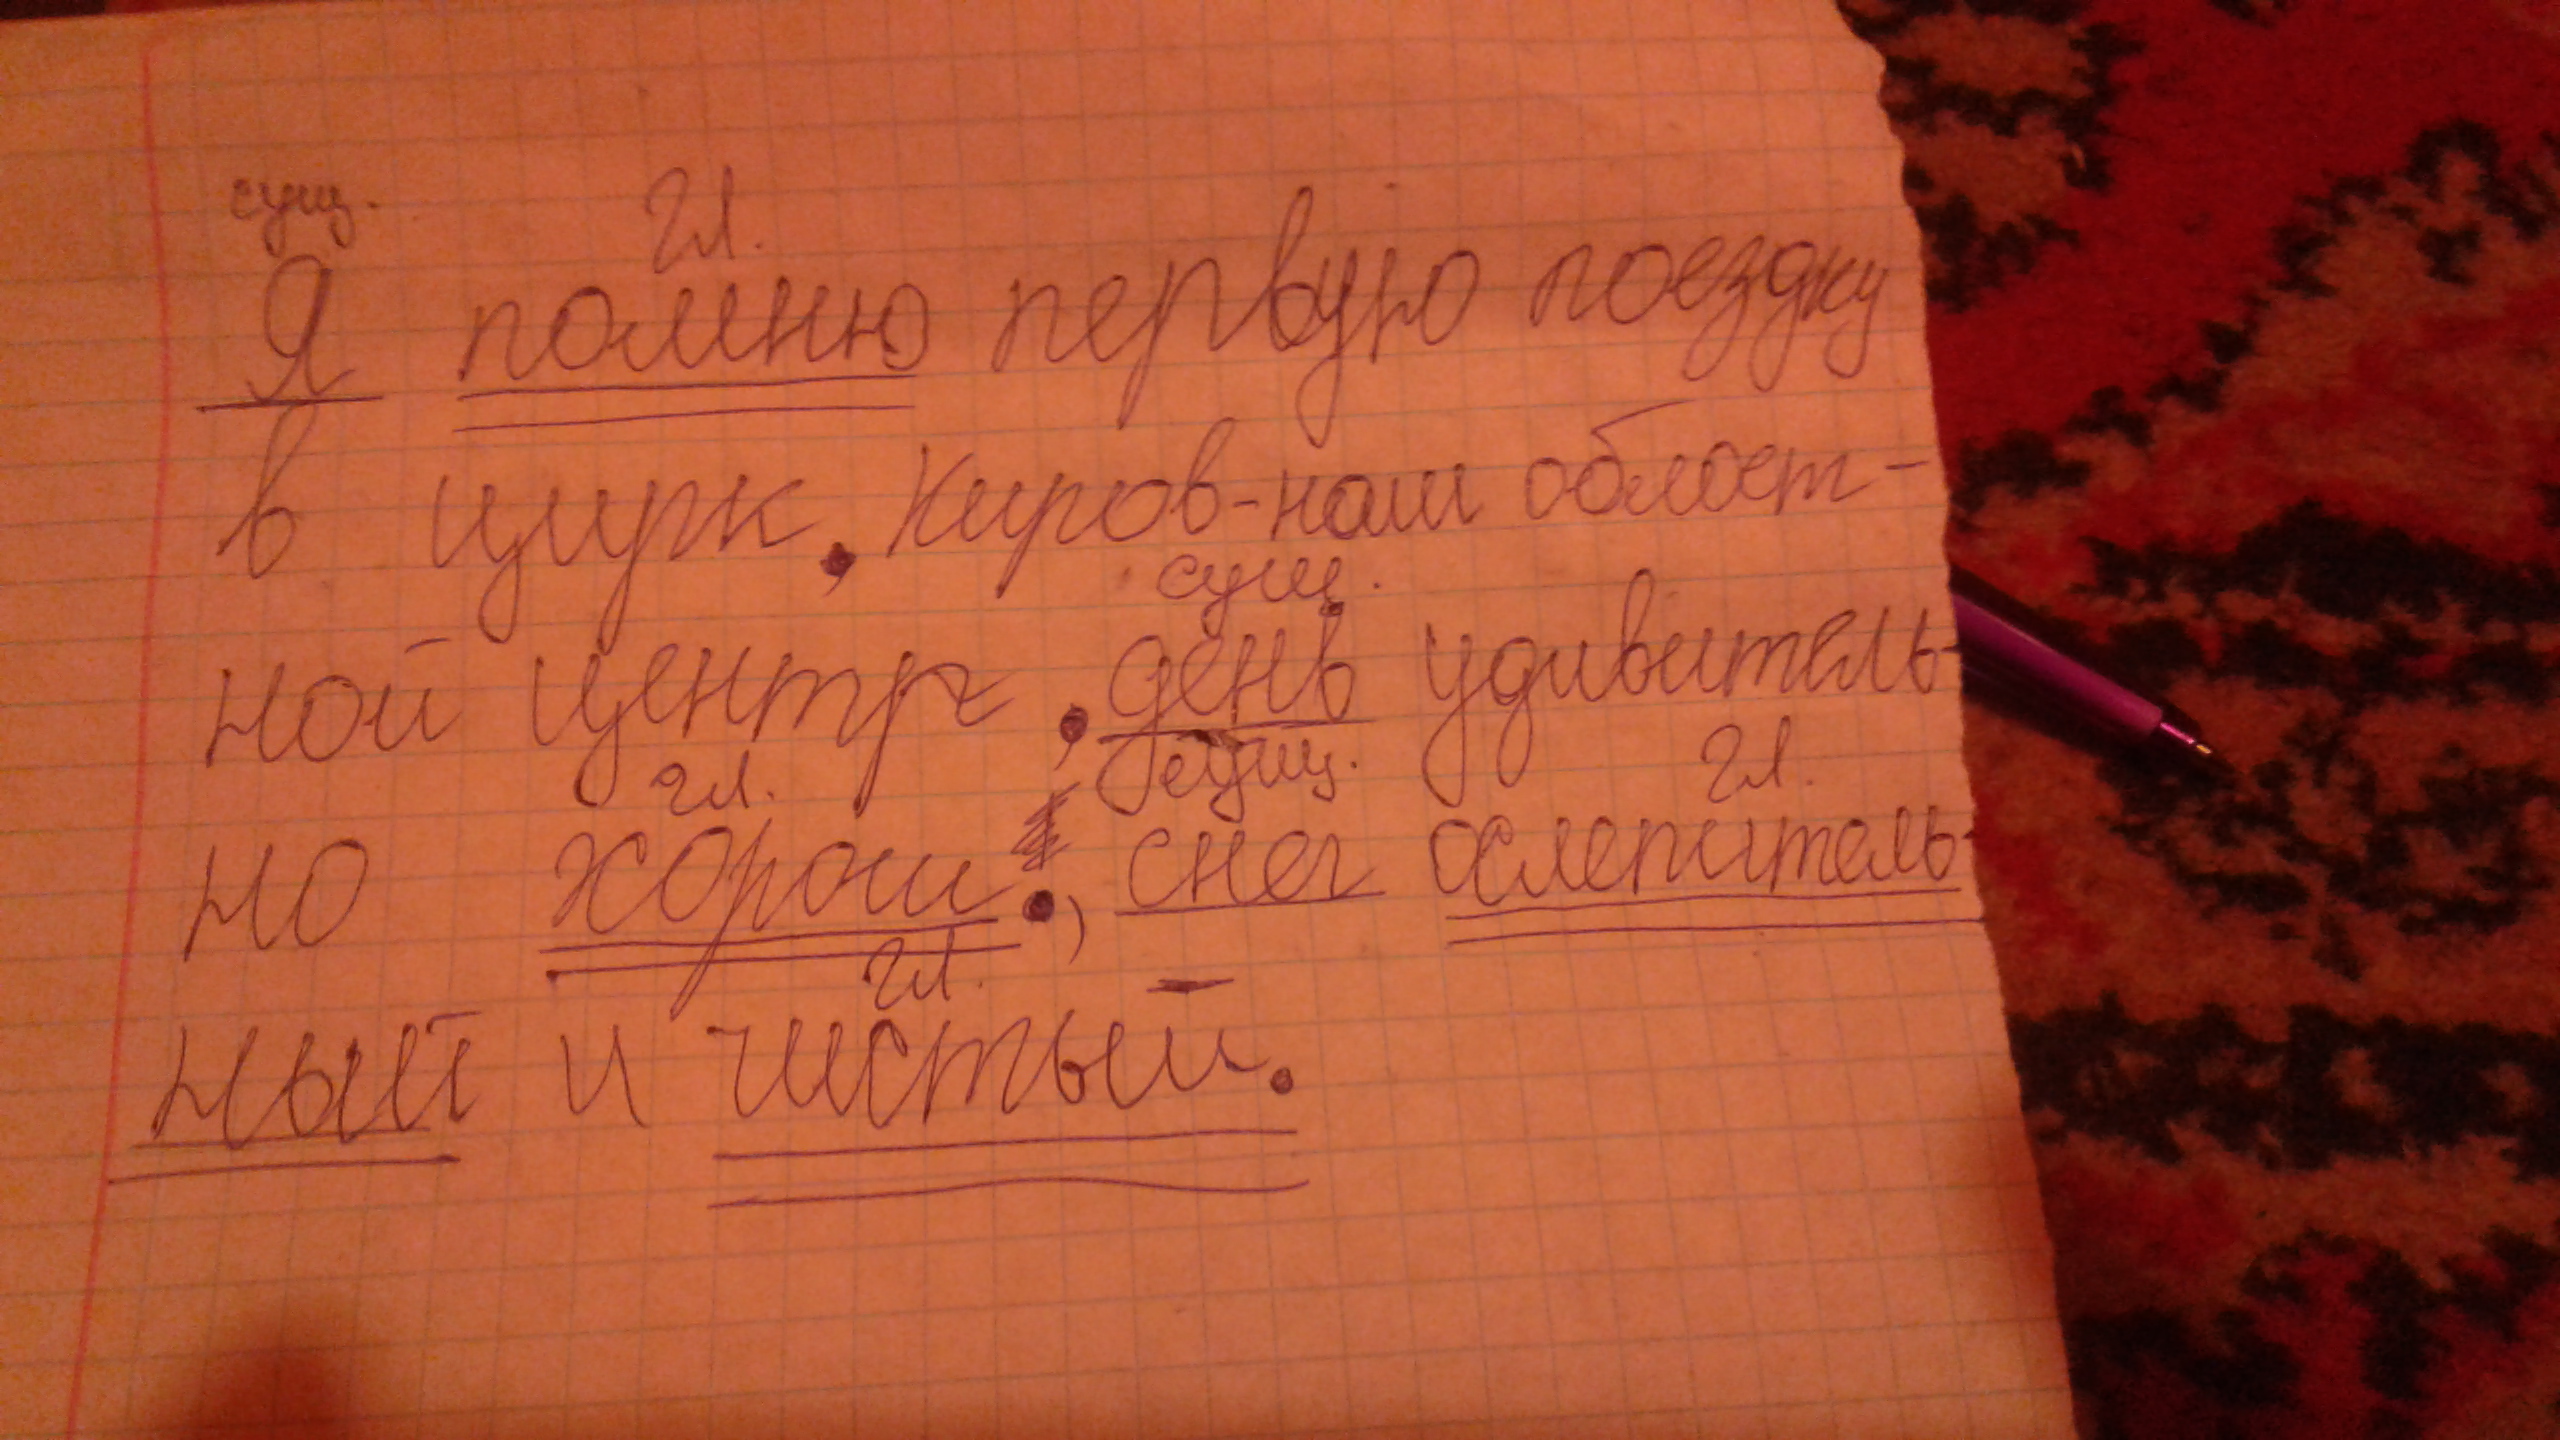 сущ. гл.
Я помню первую поездку
в цирк., Киров-наш област-
сущ.
ной центр., день удивитель-
гл. сущ. гл.
но хорош., снег ослепитель-
гл.
ный и чистый.